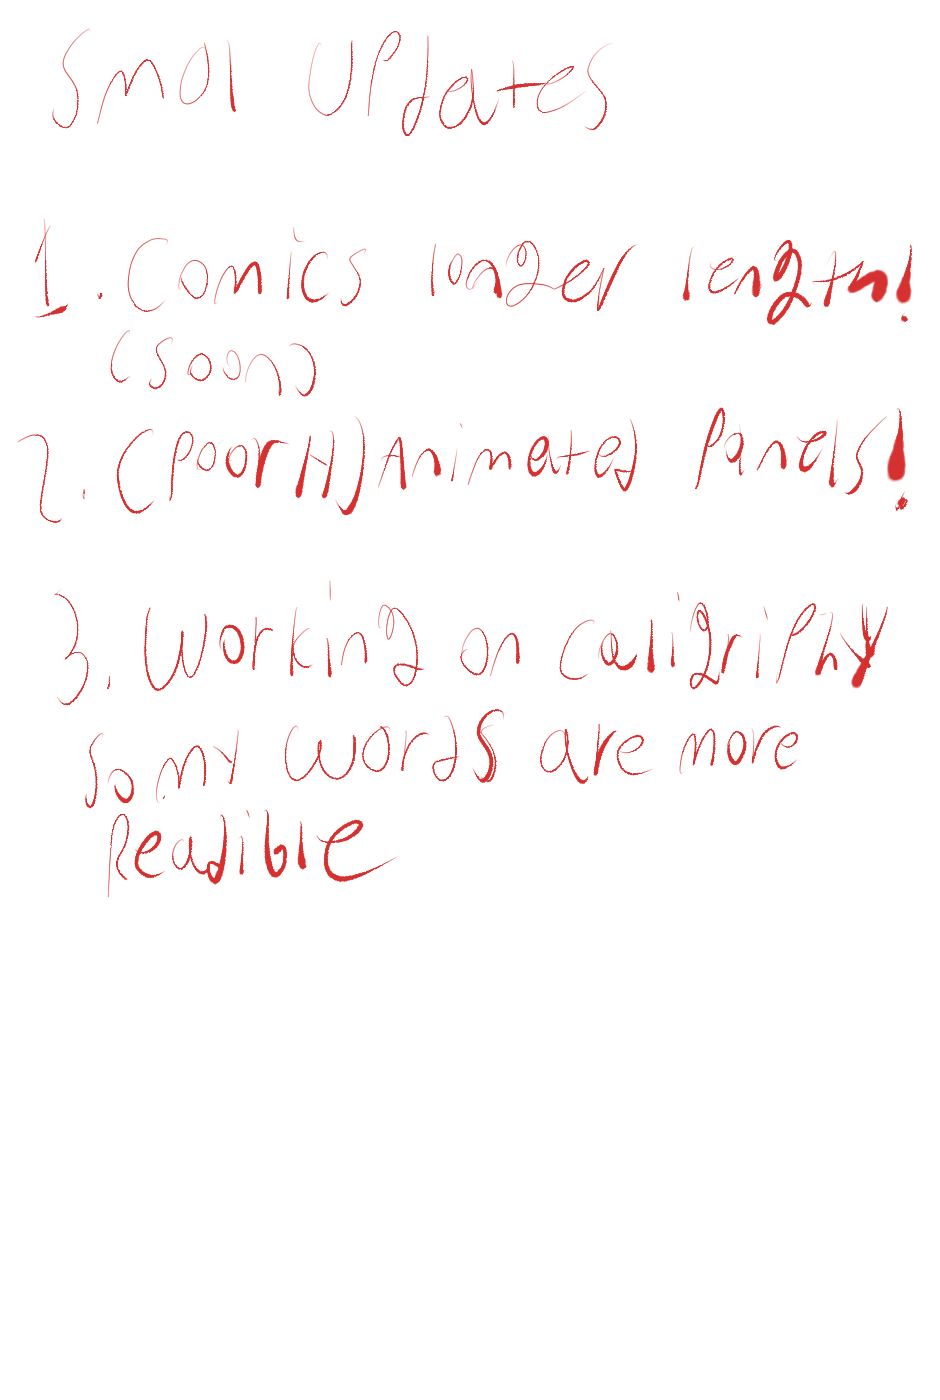 Smol Updates
1. Comics longer length!
(soon)
2. (Poorly) Animated Panels!
3. Working on caligriphy
so my words are more
Readible